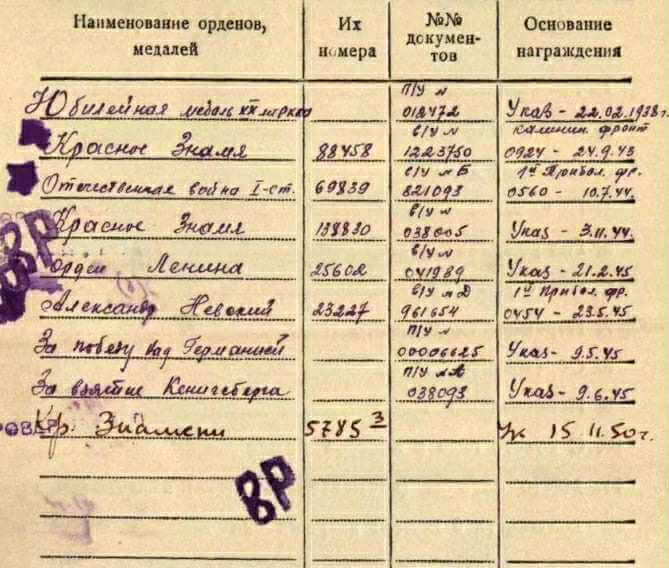 Наименование орденов, медалей
Их номера
№№ документов
Основание награждения
Юбилейная медаль XX лет РККА п/у № 012472 Указ - 22.02.1938 г.
Красное Знамя 88458 в/у № 1223750 Калинин. фронт 0924 - 24.9.43
Отечественная война I-ст. 69839 в/у № Б 821093 1й Прибал. фр. 0560 - 10.7.44.
Красное Знамя 138830 в/у № 038005 Указ - 3.11.44.
Орден Ленина 25602 в/у № 041989 Указ - 21.2.45
Александр Невский 23227 в/у № Д 961654 1й Прибал. фр. 0454 - 23.5.45
За победу над Германией п/у № 00006625 Указ - 9.5.45
За взятие Кенигсберга п/у № А 038093 Указ - 9.6.45
Кр. Знамени 5785 3 Ук 15.11.50г.
ВР
ВР